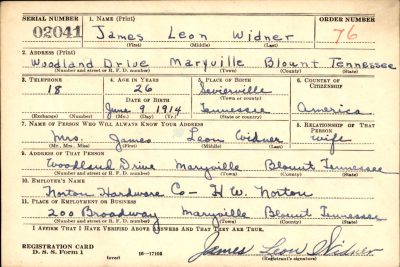 SERIAL NUMBER 1. NAME (Print) ORDER NUMBER
02041 James Leon Widner 76
(First) (Middle) (Last)
2. ADDRESS (Print)
Woodland Drive Maryville Blount Tennessee
(Number and street or R. F. D. number) (Town) (County) (State)
3. TELEPHONE 4. AGE IN YEARS 5. PLACE OF BIRTH 6. COUNTRY OF CITIZENSHIP
18 26 Sevierville
DATE OF BIRTH (Town or county)
June 9 1914 Tennessee America
(Exchange) (Number) (Mo.) (Day) (Yr.) (State or country)
7. NAME OF PERSON WHO WILL ALWAYS KNOW YOUR ADDRESS 8. RELATIONSHIP OF THAT PERSON
Mrs. James Leon Widner wife
(Mr., Mrs., Miss) (First) (Middle) (Last)
9. ADDRESS OF THAT PERSON
Woodland Drive Maryville Blount Tennessee
(Number and street or R. F. D. number) (Town) (County) (State)
10. EMPLOYER'S NAME
Norton Hardware Co – H. W. Norton
11. PLACE OF EMPLOYMENT OR BUSINESS
200 Broadway Maryville Blount Tennessee
(Number and street or R. F. D. number) (Town) (County) (State)
I AFFIRM THAT I HAVE VERIFIED ABOVE ANSWERS AND THAT THEY ARE TRUE.
REGISTRATION CARD James Leon Widner
D. S. S. FORM 1 (over) 16—17105 (Registrant's signature)